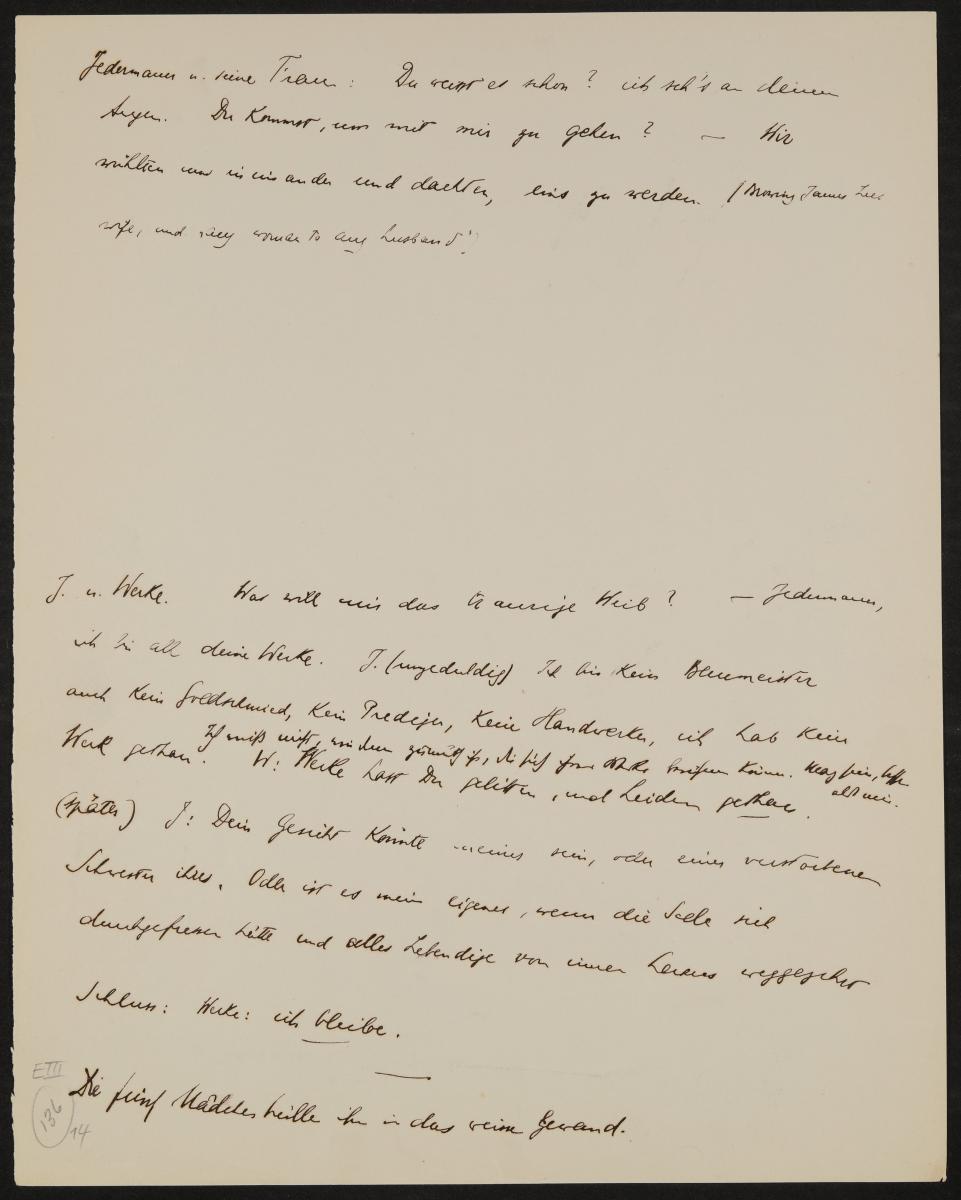 Jedermann u. seine Frau: Du weisst es schon? ich seh's an deinen
Augen. Du kommst, um mit mir zu gehen? — Wir
wühlten uns in einander und dachten, eins zu werden. (Browning James Lees
wife, und any woman to any husband!)
J. u. Werke. Was will mir das traurige Weib? — Jedermann,
ich bin all deine Werke. J. (ungeduldig) Ich bin kein Baumeister
auch kein Goldschmied, kein Prediger, kein Handwerker, ich hab kein
Ich weiß nicht, wie dem zumuth ist, die sich
Werk gethan. W: Werke hast Du gelitten, und Leiden gethan.
(später) J: Dein Gesicht könnte meines sein, oder einer verstorbenen
Schwester ihres. Oder ist es mein eigenes, wenn die Seele sich
durchgefressen hätte und alles Lebendige von innen heraus weggezehrt
Schluss: Werke: ich bleibe.
Die fünf Mädchen hülle ihn in das weisse Gewand.
E III
136
14